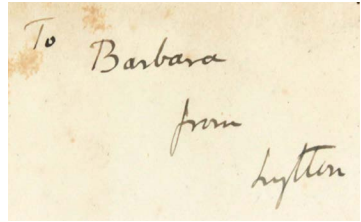 To
Barbara
from
Lytton